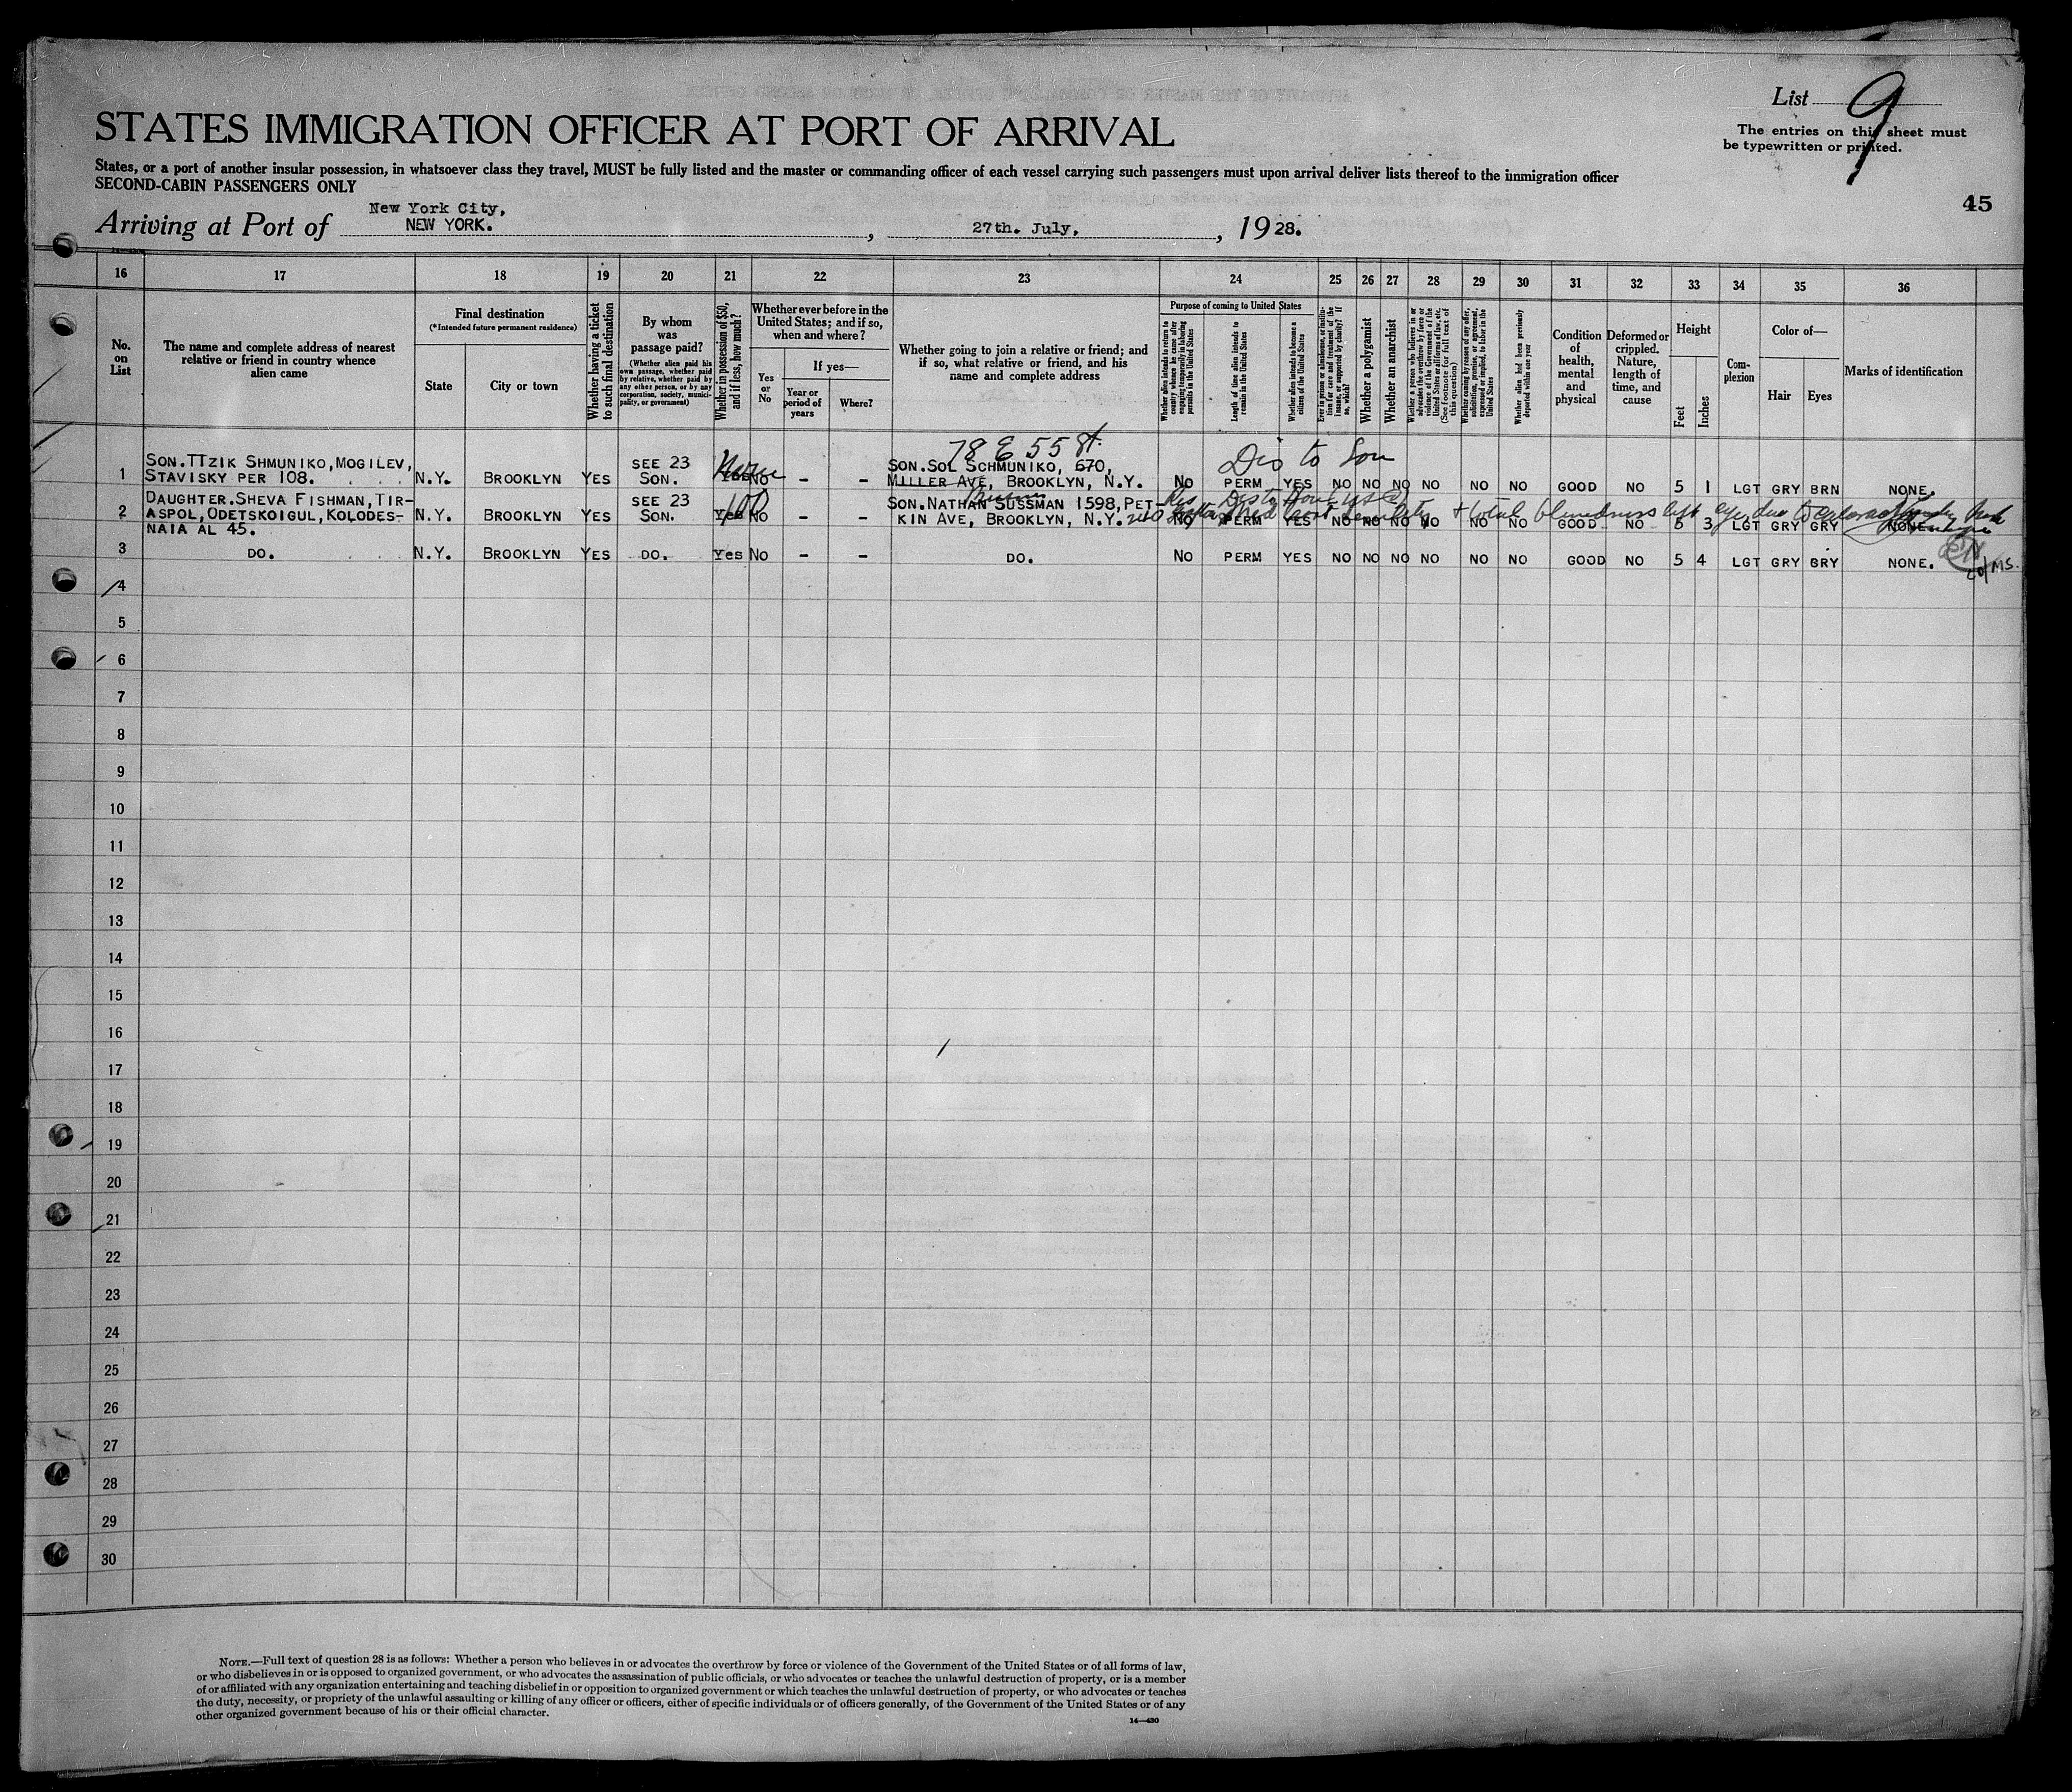 List 9
The entries on this sheet must
be typewritten or printed.
STATES IMMIGRATION OFFICER AT PORT OF ARRIVAL
States, or a port of another insular possession, in whatsoever class they travel, MUST be fully listed and the master or commanding officer of each vessel carrying such passengers must upon arrival deliver lists thereof to the immigration officer
SECOND-CABIN PASSENGERS ONLY
45
New York City,
Arriving at Port of NEW YORK. , 27th. July, , 1928.
16 17 18 19 20 21 22 23 24 25 26 27 28 29 30 31 32 33 34 35 36
No. on List
The name and complete address of nearest relative or friend in country whence alien came
Final destination
(*Intended future permanent residence)
State
City or town
Whether having a ticket to such final destination
By whom was passage paid?
(Whether alien paid his own passage, whether paid by relative, whether paid by any other person, or by any corporation, society, municipality, or government)
Whether in possession of $50, and if less, how much?
Whether ever before in the United States; and if so, when and where?
Yes or No
If yes—
Year or period of years
Where?
Whether going to join a relative or friend; and if so, what relative or friend, and his name and complete address
Purpose of coming to United States
Whether alien intends to return to country whence he came after engaging temporarily in laboring pursuits in the United States
Length of time alien intends to remain in the United States
Whether alien intends to become a citizen of the United States
Ever in prison or almshouse, or institution for care and treatment of the insane, or supported by charity? If so, which?
Whether a polygamist
Whether an anarchist
Whether a person who believes in or advocates the overthrow by force or violence of the Government of the United States or all forms of law, etc. (See footnote for full text of this question)
Whether coming by reason of any offer, solicitation, promise, or agreement, expressed or implied, to labor in the United States
Whether alien had been previously deported within one year
Condition of health, mental and physical
Deformed or crippled. Nature, length of time, and cause
Height
Feet
Inches
Complexion
Color of—
Hair
Eyes
Marks of identification
78 E 55 St.
Dis to Son
1 SON. TTZIK SHMUNIKO, MOGILEV, SEE 23 None SON. SOL SCHMUNIKO, 670,
STAVISKY PER 108. . . . N.Y. BROOKLYN YES SON. YES NO – – MILLER AVE, BROOKLYN, N.Y. NO PERM YES NO NO NO NO NO NO GOOD NO 5 1 LGT GRY BRN NONE.
2 DAUGHTER. SHEVA FISHMAN, TIR- SEE 23 100 SON. NATHAN SUSSMAN 1598, PET-
ASPOL, ODETSKOIGUL, KOLODES- N.Y. BROOKLYN YES SON. YES NO – – KIN AVE, BROOKLYN, N.Y. NO PERM YES NO NO NO NO NO NO GOOD NO 5 3 LGT GRY GRY NONE.
NAIA AL 45.
senility + total blindness left eye due to
3 DO. . . . N.Y. BROOKLYN YES DO. YES NO – – DO. NO PERM YES NO NO NO NO NO NO GOOD NO 5 4 LGT GRY GRY NONE.
4
5
6
7
8
9
10
11
12
13
14
15
16
17
18
19
20
21
22
23
24
25
26
27
28
29
30
NOTE.—Full text of question 28 is as follows: Whether a person who believes in or advocates the overthrow by force or violence of the Government of the United States or of all forms of law,
or who disbelieves in or is opposed to organized government, or who advocates the assassination of public officials, or who advocates or teaches the unlawful destruction of property, or is a member
of or affiliated with any organization entertaining and teaching disbelief in or opposition to organized government or which teaches the unlawful destruction of property, or who advocates or teaches
the duty, necessity, or propriety of the unlawful assaulting or killing of any officer or officers, either of specific individuals or of officers generally, of the Government of the United States or of any
other organized government because of his or their official character.
14—430